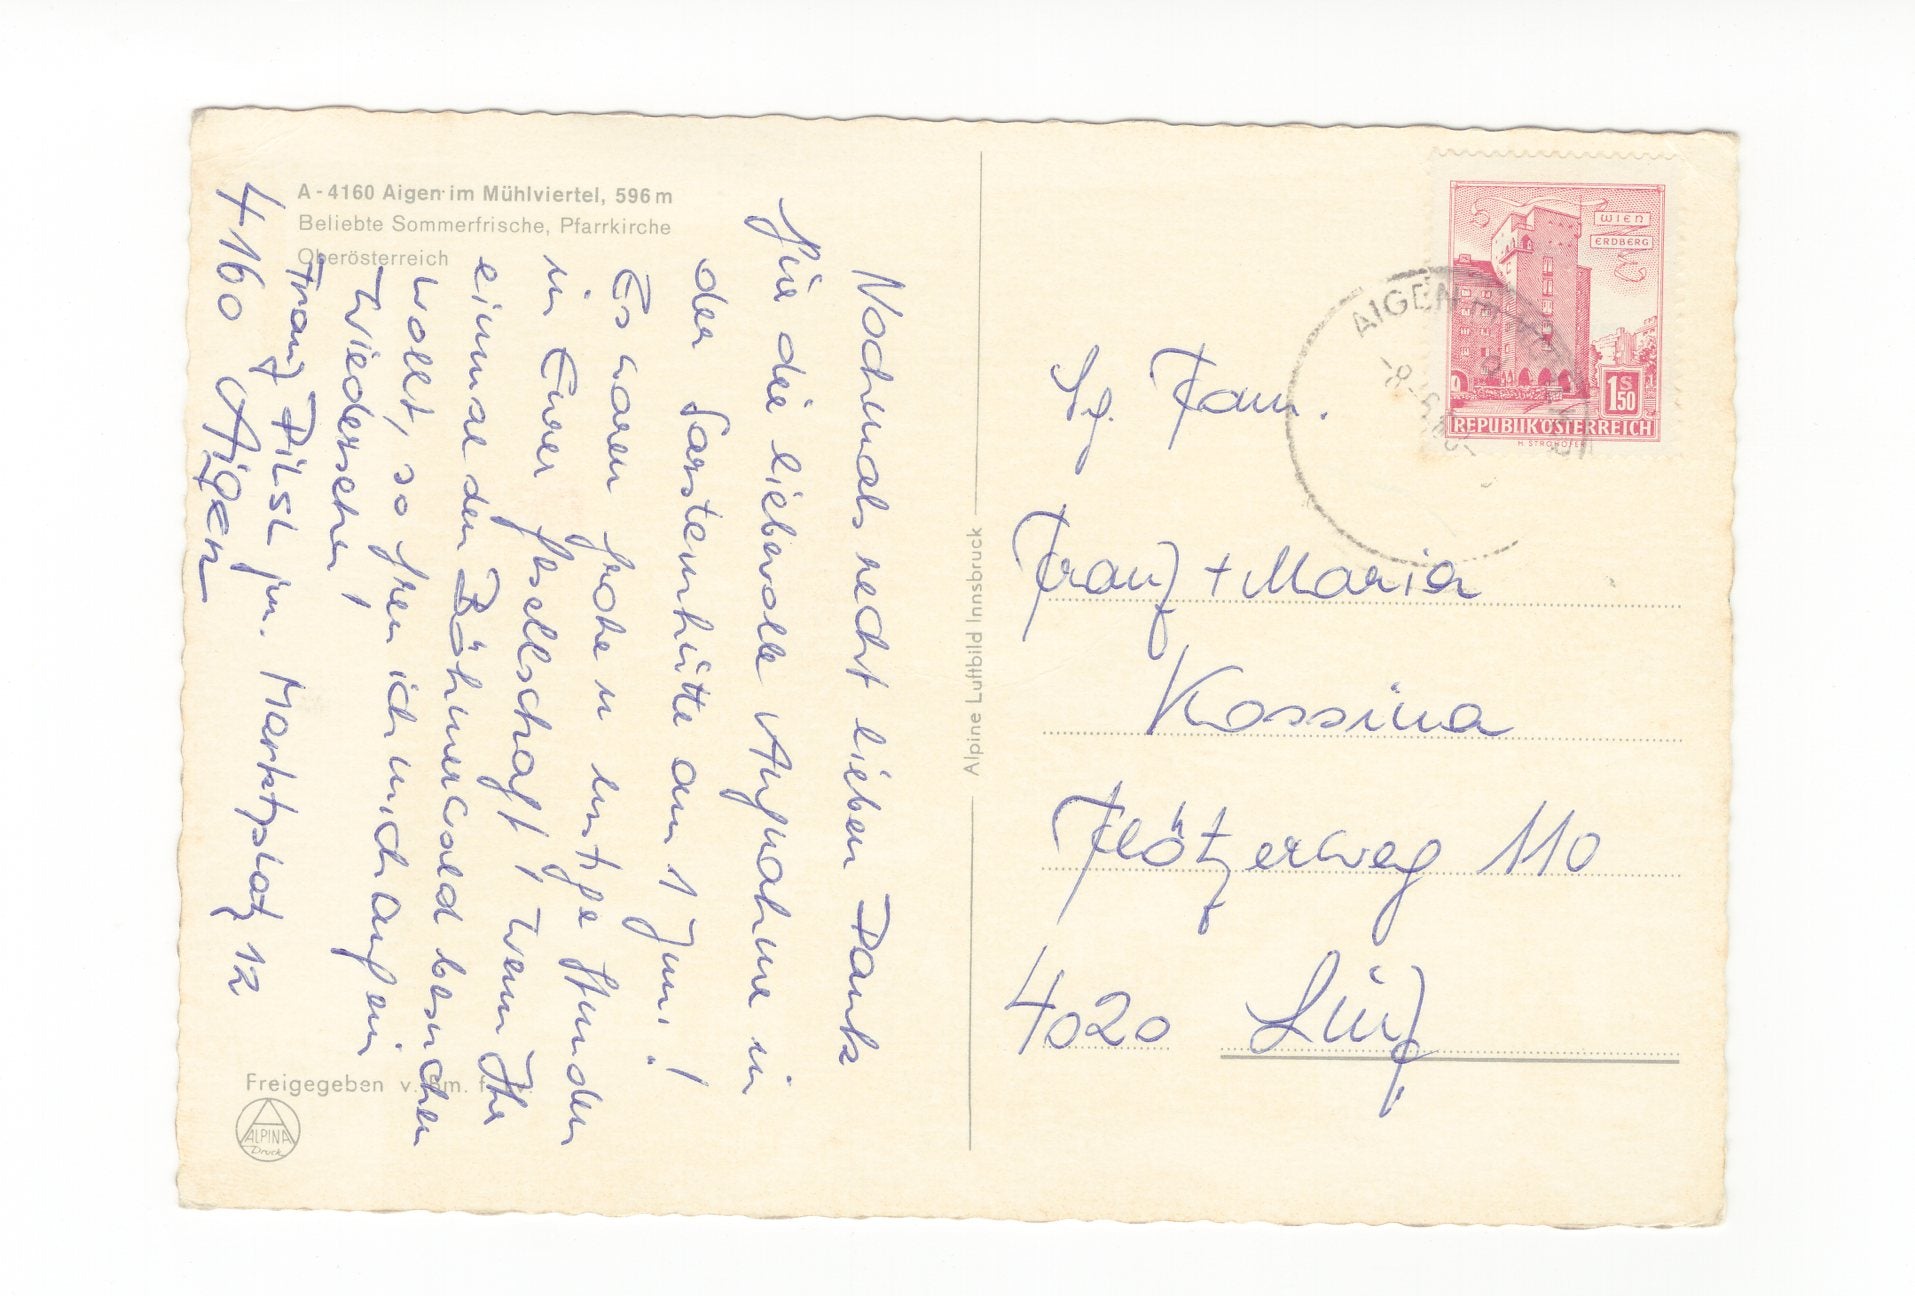 A - 4160 Aigen im Mühlviertel, 596 m
Beliebte Sommerfrische, Pfarrkirche
Oberösterreich
Nochmals recht lieben Dank
für die liebevolle Aufnahme in
der Sarsteinhütte am 1 Juni!
Es waren frohe u lustige Stunden
in Eurer Gesellschaft! Wenn Ihr
einmal den Böhmerwald besuchen
wollt, so freu ich mich auf ein
Wiedersehen!
Franz Pilsl jun. Marktplatz 12
4160 Aigen
Freigegeben v.
ALPINA
Druck
Alpine Luftbild Innsbruck
WIEN
ERDBERG
1 S 50
REPUBLIK ÖSTERREICH
H. STROHOFER
AIGEN
Sg. Fam.
Franz + Maria
Kossina
Flötzerweg 110
4020 Linz